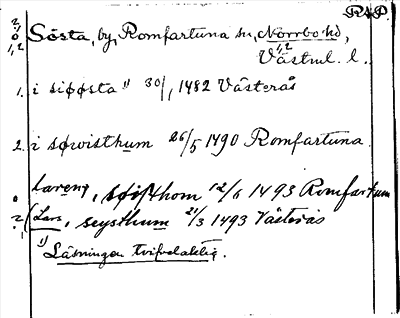 RAP
2, 0 1,2 Sösta, by, Romfartuna sn, Norrbo hd,
1,2 Västml. l.
1. i siøøsta 1) 30/1 1482 Västerås
2. i søwisthum 26/5 1490 Romfartuna
0 larens, søiisthom 12/6 1493 Romfartuna
2. (Lars, seysthum 21/3 1493 Västerås
1) Läsningen tvifvelaktig.